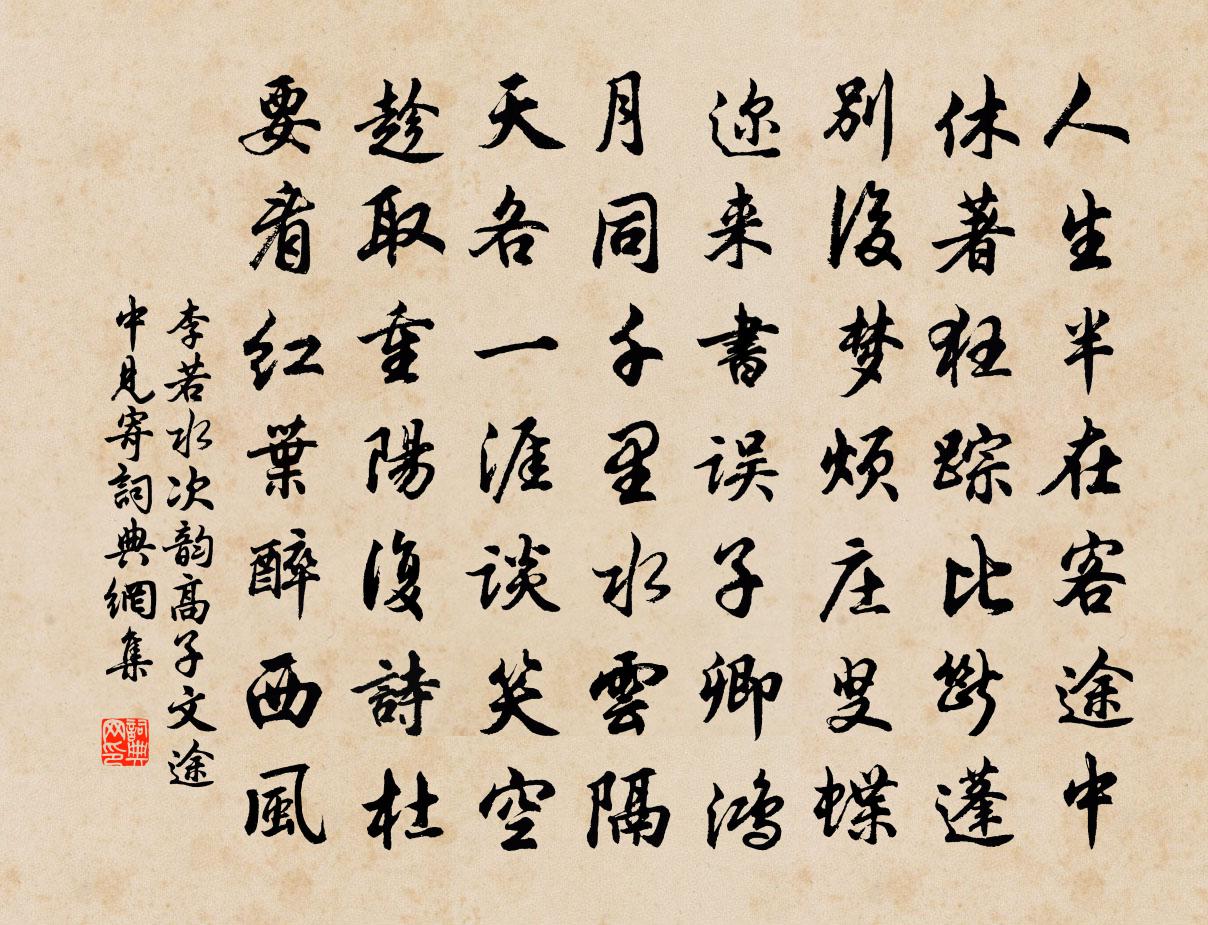 人生半在客途中
休著狂踪比断蓬
别後梦烦庄叟蝶
迩来書误子卿鸿
月同千里水雲隔
天各一涯谈笑空
趁取重陽復詩杜
要看红葉醉西風
李若水次韵高子文途
中見寄詞典網集
詞典
网印